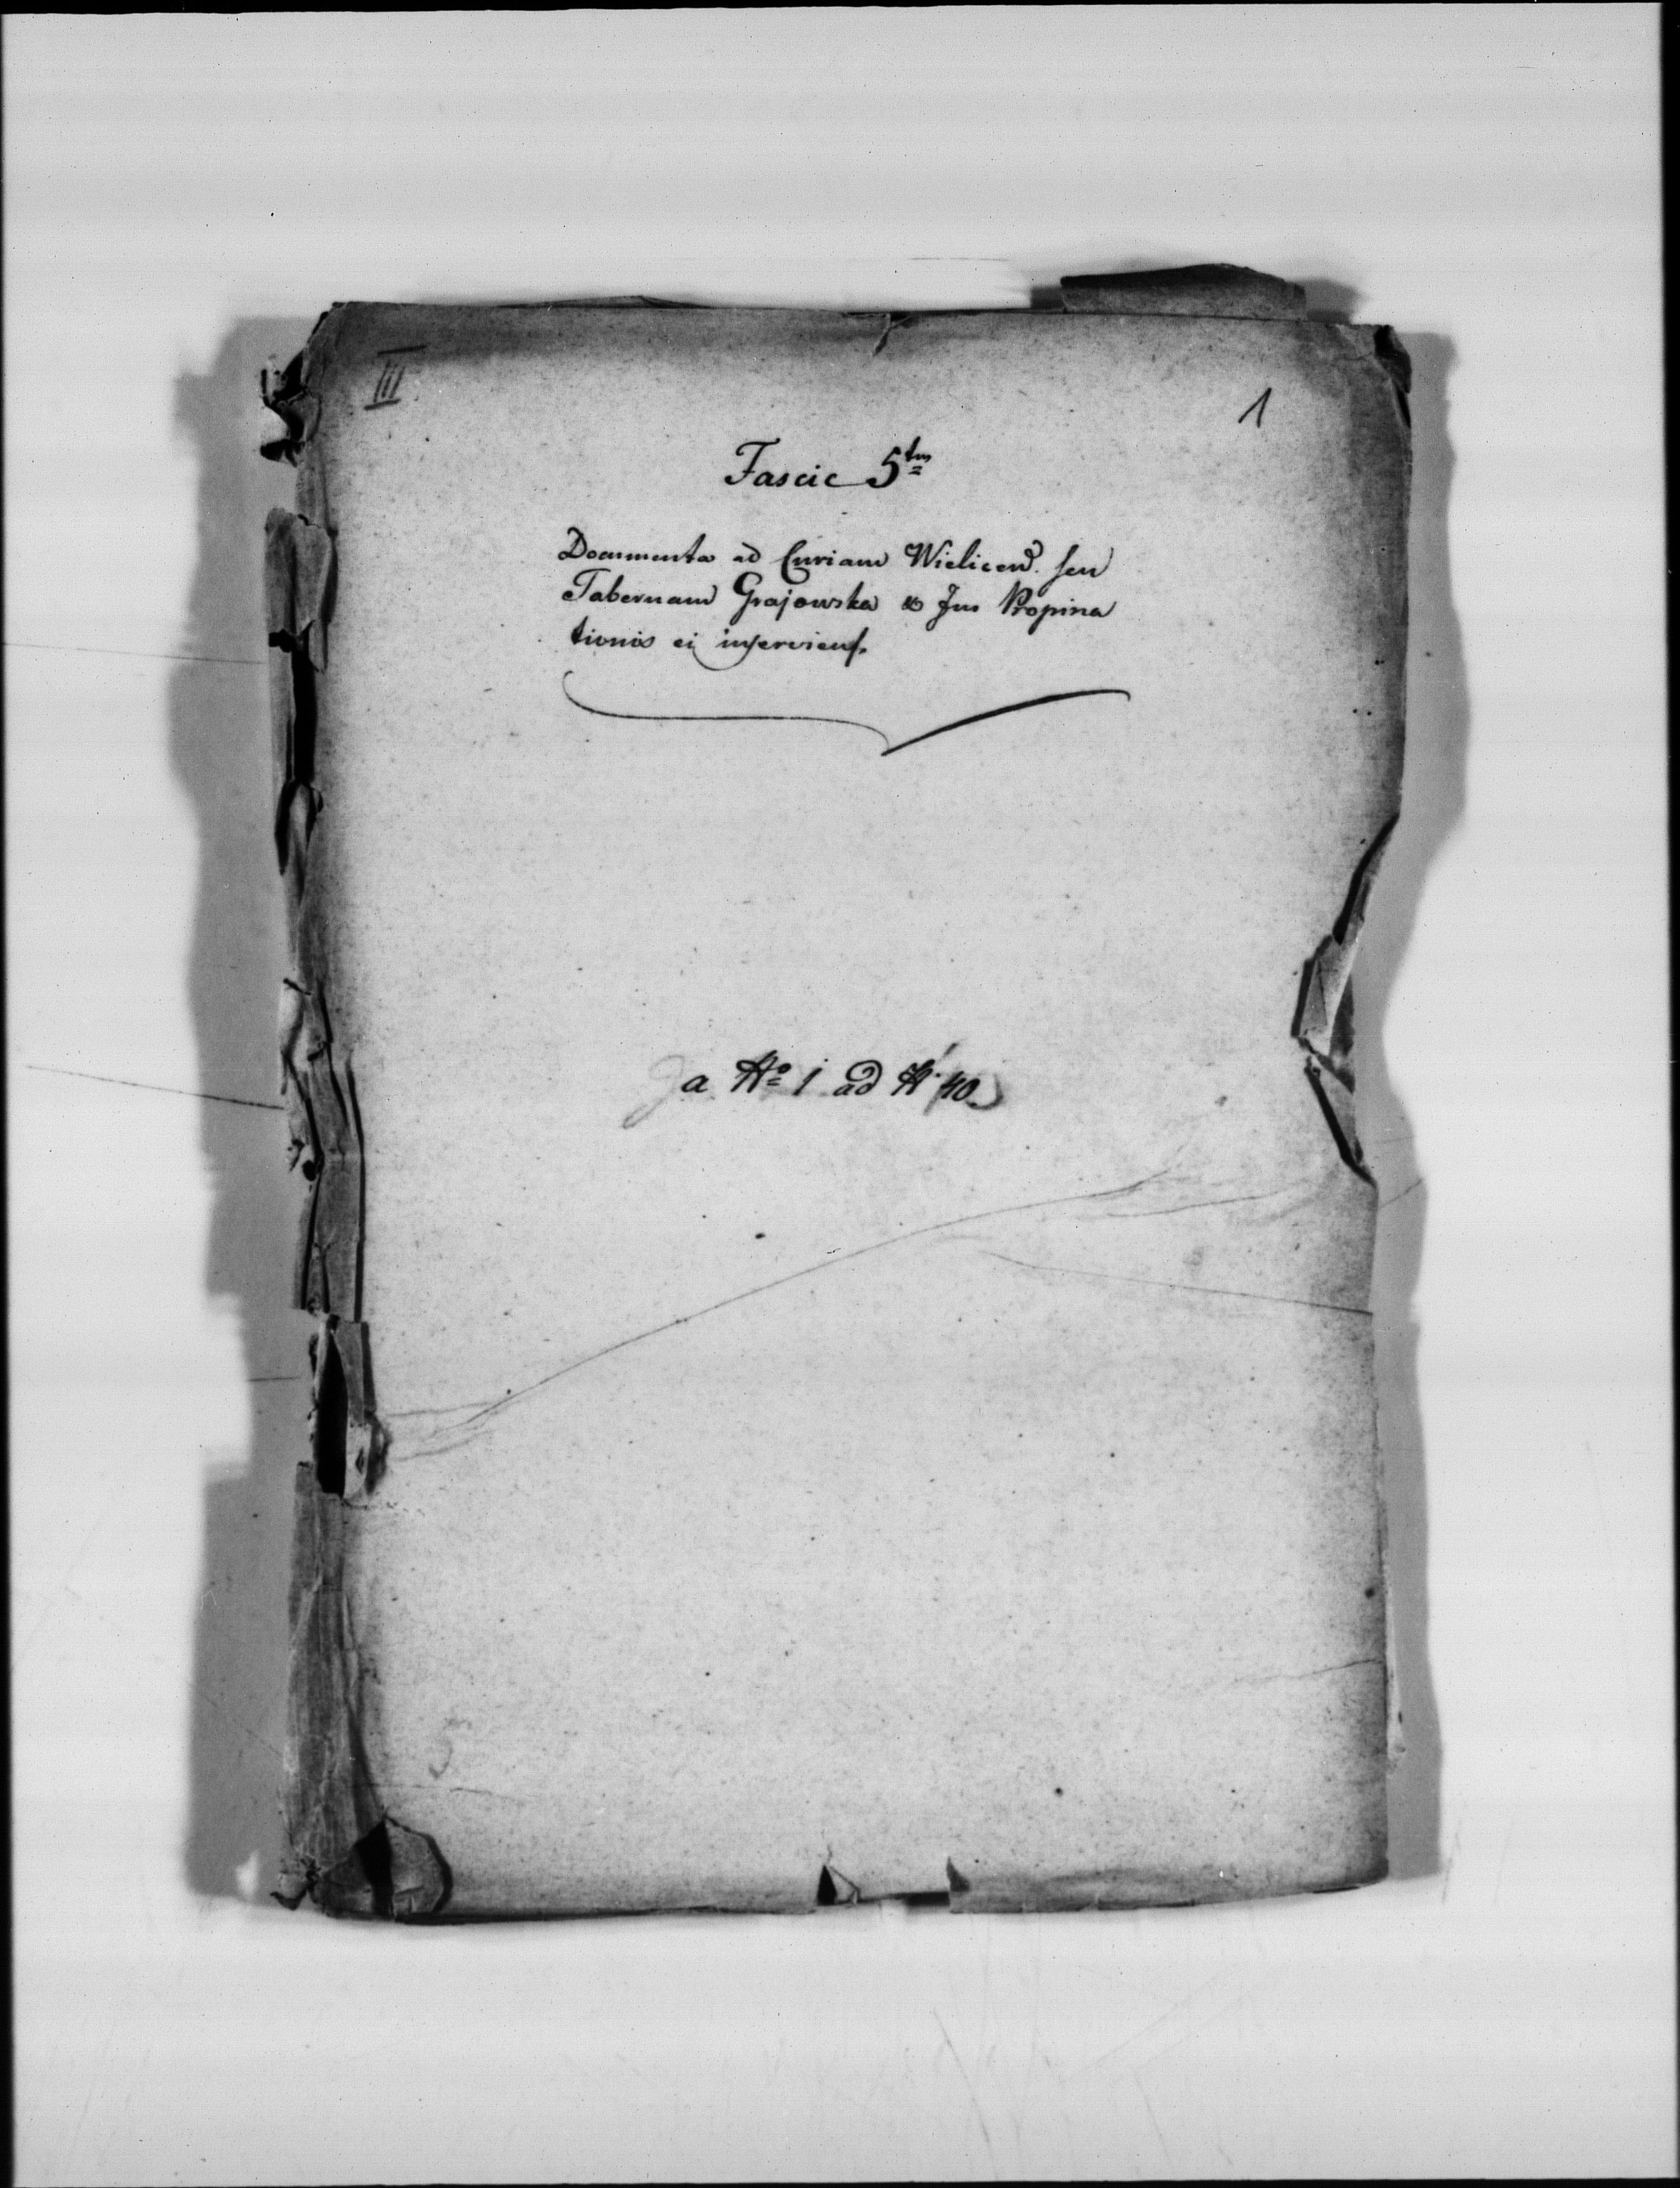 III
1
Fascic 5tus
Documenta ad Curiam Wielicens. seu
Tabernam Grajowska et Jus Propina
tionis ei inserviens.
a No 1 ad N 40